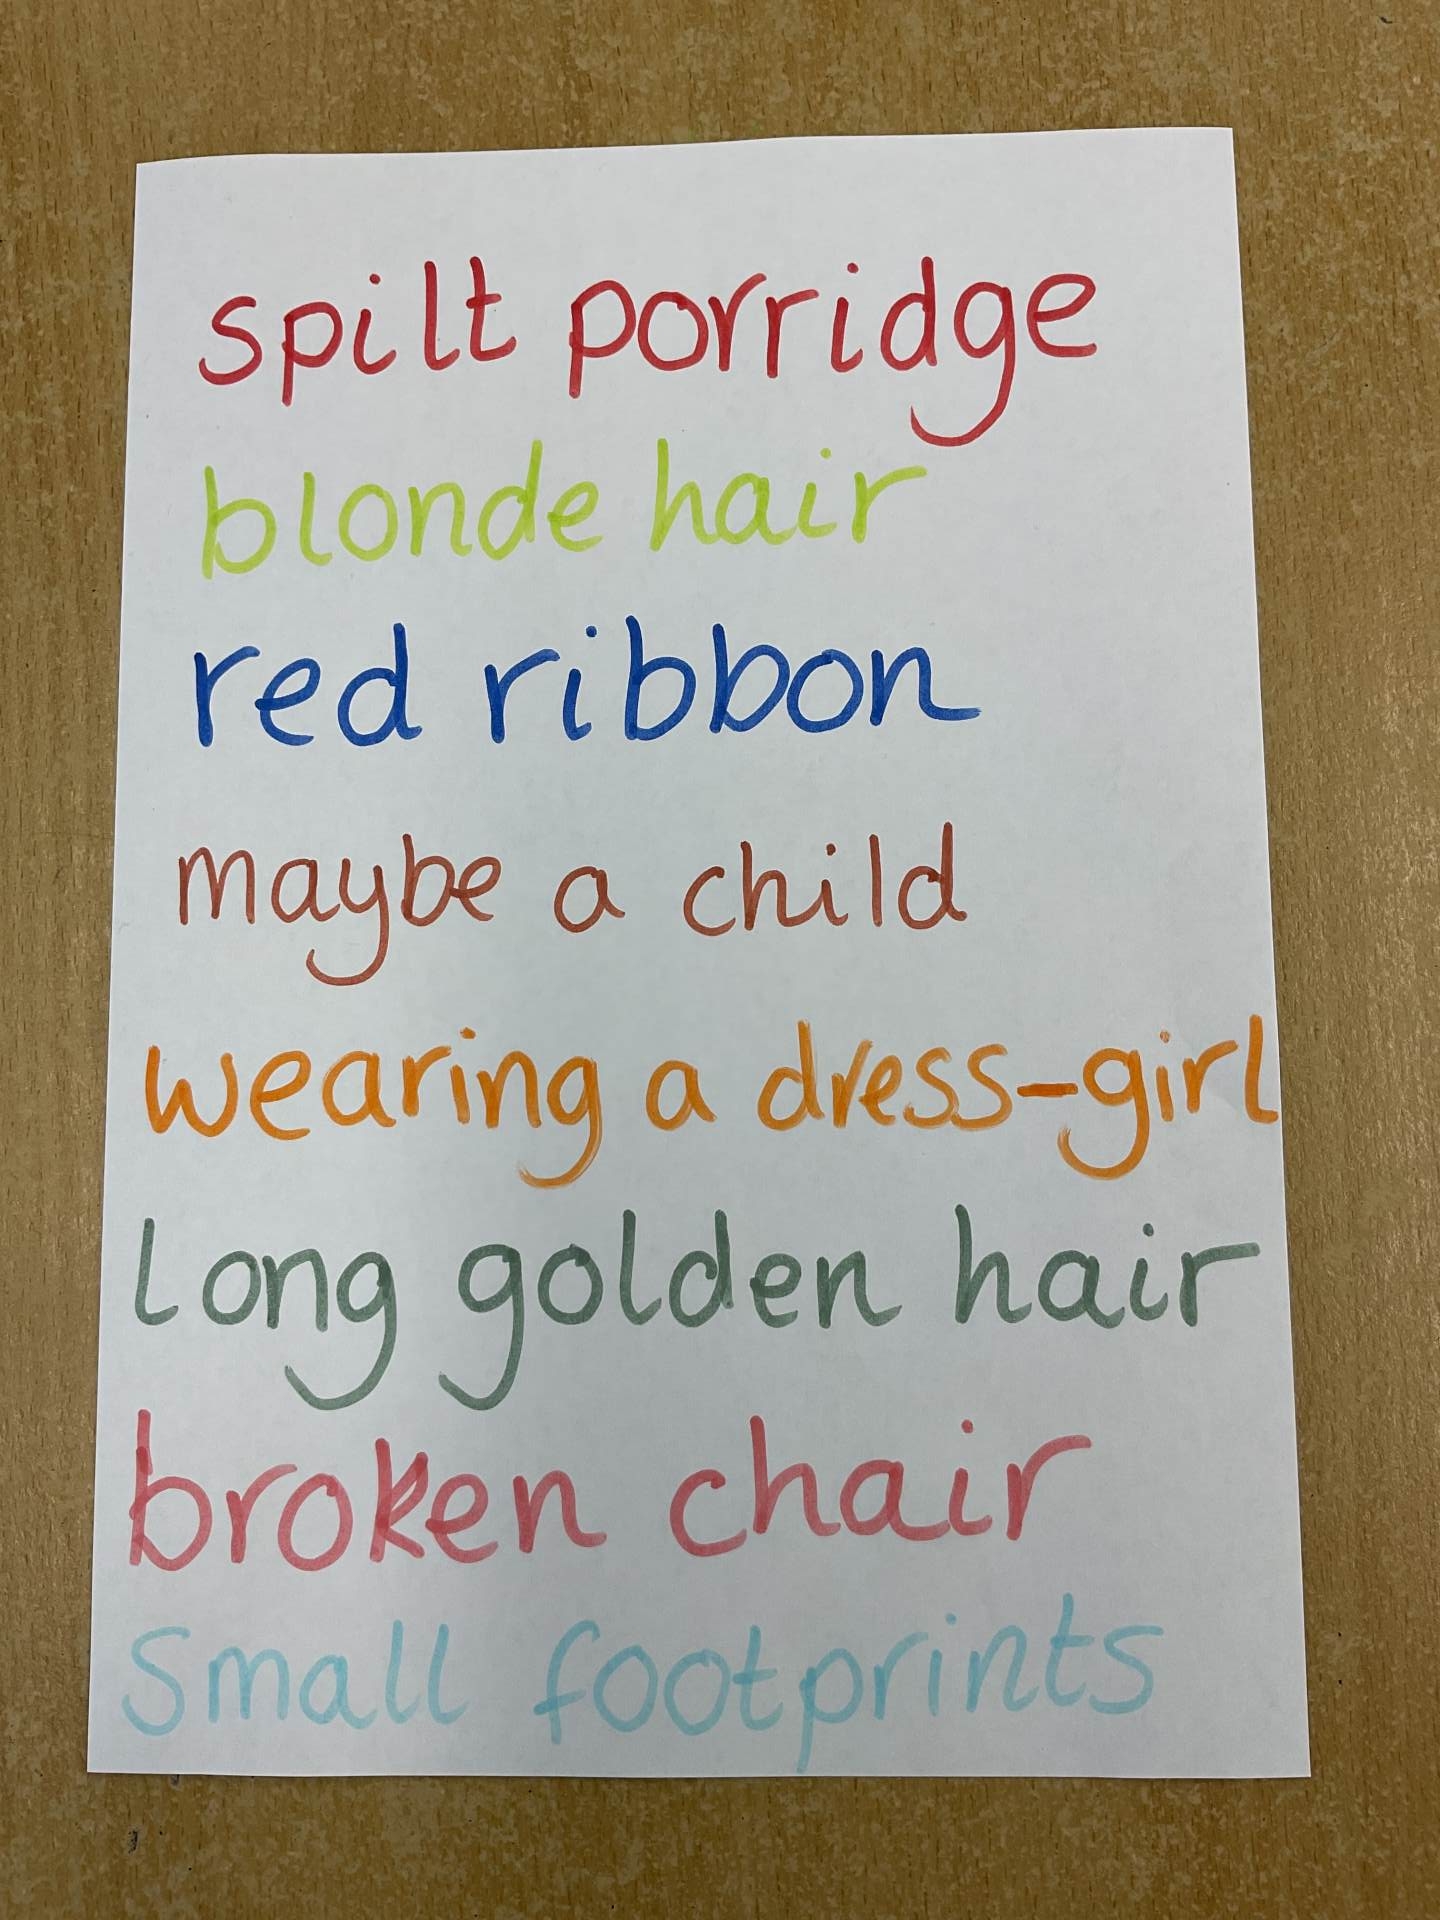 spilt porridge
blonde hair
red ribbon
maybe a child
wearing a dress-girl
long golden hair
broken chair
Small footprints